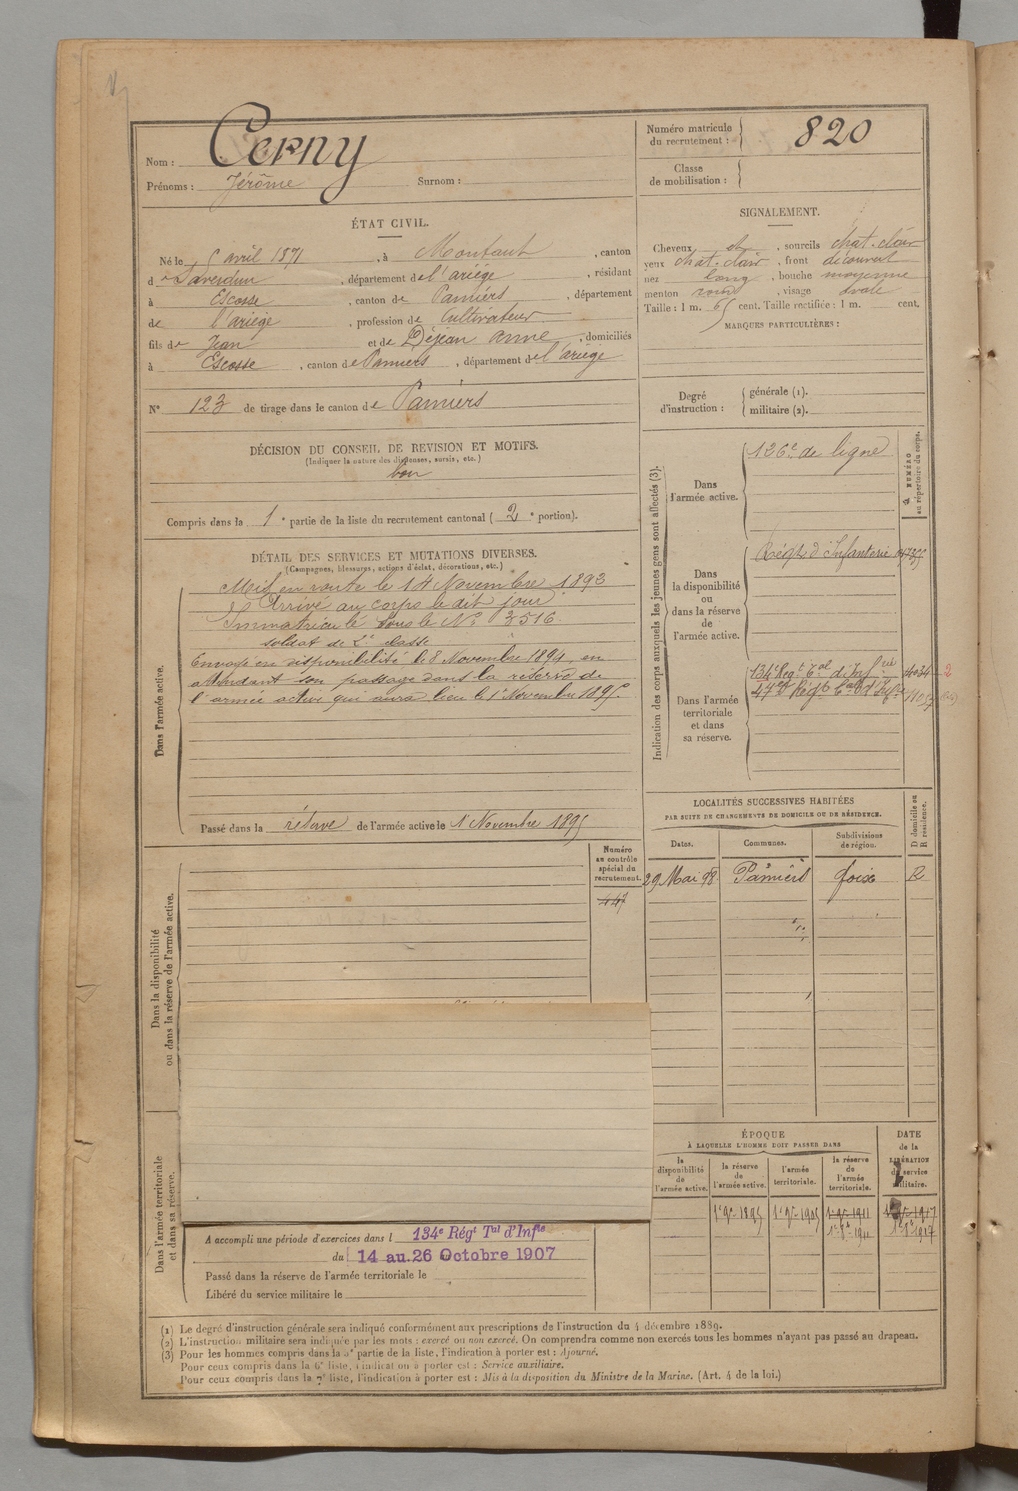 Nom : Cerny
Prénoms : Jérôme Surnom :
Numéro matricule du recrutement : 820
Classe de mobilisation :
ÉTAT CIVIL.
Né le 5 avril 1871, à Montaut, canton
de Saverdun, département de l'ariège, résidant
à Escosse, canton de Pamiers, département
de l'ariège, profession de Cultivateur
fils de Jean et de Déjean Anne, domiciliés
à Escosse, canton de Pamiers, département de l'ariège
N° 123 de tirage dans le canton de Pamiers
DÉCISION DU CONSEIL DE REVISION ET MOTIFS.
(Indiquer la nature des dispenses, sursis, etc.)
bon
Compris dans la 1e partie de la liste du recrutement cantonal (2e portion).
DÉTAIL DES SERVICES ET MUTATIONS DIVERSES.
(Campagnes, blessures, actions d'éclat, décorations, etc.)
Dans l'armée active.
Mis en route le 14 Novembre 1893
Arrivé au corps le dit jour
Immatriculé sous le N° 3516.
soldat de 2e classe
Envoyé en disponibilité le 8 Novembre 1894, en
attendant son passage dans la réserve de
l'armée active qui aura lieu le 1 Novembre 1895
Passé dans la réserve de l'armée active le 1 Novembre 1895
SIGNALEMENT.
Cheveux et, sourcils chat. clair
yeux chat. clair, front découvert
nez long, bouche moyenne
menton rond, visage ovale
Taille : 1 m. 65 cent. Taille rectifiée : 1 m. cent.
MARQUES PARTICULIÈRES :
Degré d'instruction : générale (1).
militaire (2).
Indication des corps auxquels les jeunes gens sont affectés (3).
NUMÉRO au répertoire du corps.
Dans l'armée active.
126e de ligne
Dans la disponibilité ou dans la réserve de l'armée active.
Régt d'Infanterie
Dans l'armée territoriale et dans sa réserve.
134e Régt Tal d'Infrie 4034 2
LOCALITÉS SUCCESSIVES HABITÉES
PAR SUITE DE CHANGEMENTS DE DOMICILE OU DE RÉSIDENCE.
D domicile ou R résidence.
Dates. Communes. Subdivisions de région.
29 Mai 98. Pamiers foix R
Dans la disponibilité ou dans la réserve de l'armée active.
Numéro au contrôle spécial du recrutement.
447
Dans l'armée territoriale et dans sa réserve.
A accompli une période d'exercices dans l 134e Régt Tal d'Infie
du 14 au 26 Octobre 1907
Passé dans la réserve de l'armée territoriale le
Libéré du service militaire le
ÉPOQUE
À LAQUELLE L'HOMME DOIT PASSER DANS
DATE de la LIBÉRATION du service militaire.
la disponibilité de l'armée active.
la réserve de l'armée active.
l'armée territoriale.
la réserve de l'armée territoriale.
1r 9e 1895 1r 9e 1905 1r 9e 1911 1r 9e 1917
1r 8e 1911 1r 8e 1917
(1) Le degré d'instruction générale sera indiqué conformément aux prescriptions de l'instruction du 4 décembre 1889.
(2) L'instruction militaire sera indiquée par les mots : exercé ou non exercé. On comprendra comme non exercés tous les hommes n'ayant pas passé au drapeau.
(3) Pour les hommes compris dans la 5e partie de la liste, l'indication à porter est : Ajourné.
Pour ceux compris dans la 6e liste, l'indication à porter est : Service auxiliaire.
Pour ceux compris dans la 7e liste, l'indication à porter est : Mis à la disposition du Ministre de la Marine. (Art. 4 de la loi.)